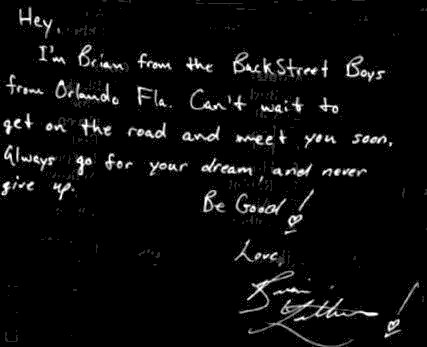 Hey,
I'm Brian from the BackStreet Boys
from Orlando Fla. Can't wait to
get on the road and meet you soon.
Always go for your dream, and never
give up.
Be Good!
Love,
Brian